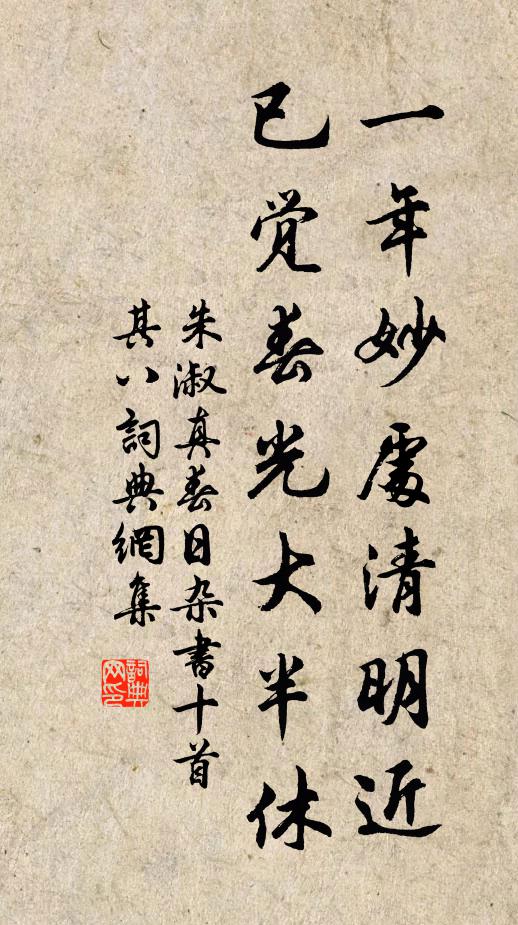 一年妙處清明近
已觉春光大半休
朱淑真春日杂書十首
其八詞典網集
詞典网印